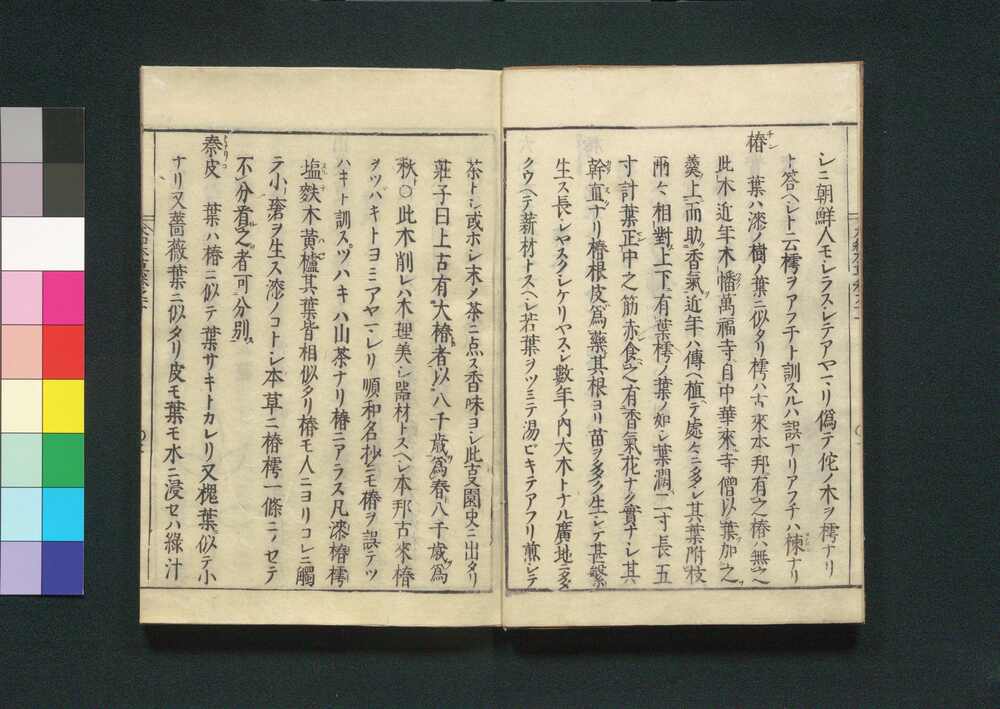 シニ朝鮮人モシラスシテアヤマリ偽テ佗ノ木ヲ樗ナリ
ト答ヘシト云樗ヲアフチト訓スルハ誤ナリアフチハ楝ナリ
椿 葉ハ漆ノ樹ノ葉ニ似タリ樗ハ古來本邦有之椿ハ無之
此木近年木幡萬福寺自中華來寺僧以葉加之
羹上而助香氣近年ハ傳ヘ植テ處々ニ多シ其葉附枝
兩々相對上下有葉樗ノ葉ノ如シ葉濶二寸長五
寸計葉正中之筋赤食之有香氣花ナク實ナシ其
幹直ナリ椿根皮爲藥其根ヨリ苗ヲ多ク生シテ甚繁
生ス長シヤスクシケリヤスシ數年ノ内大木トナル廣地ニ多
クウヘテ薪材トスヘシ若葉ヲツミテ湯ビキテアフリ煎シテ
茶トシ或ホシ末ノ茶ニ点ス香味ヨシ此㕝園史ニ出タリ
莊子曰上古有大椿者以八千歳爲春八千歳爲
秋○此木削レハ木理美シ器材トスヘシ本邦古來椿
ヲツバキトヨミアヤマレリ順和名抄ニモ椿ヲ誤テツ
ハキト訓スツハキハ山茶ナリ椿ニアラス凡漆椿樗
塩麩木黄櫨其葉皆相似タリ椿モ人ニヨリコレニ觸
テ小瘡ヲ生ス漆ノコトシ本草ニ椿樗一條ニノセテ
不分着之者可分別
秦皮 葉ハ椿ニ似テ葉サキトカレリ又槐葉似テ小
ナリ又薔薇葉ニ似タリ皮モ葉モ水ニ浸セハ綠汁